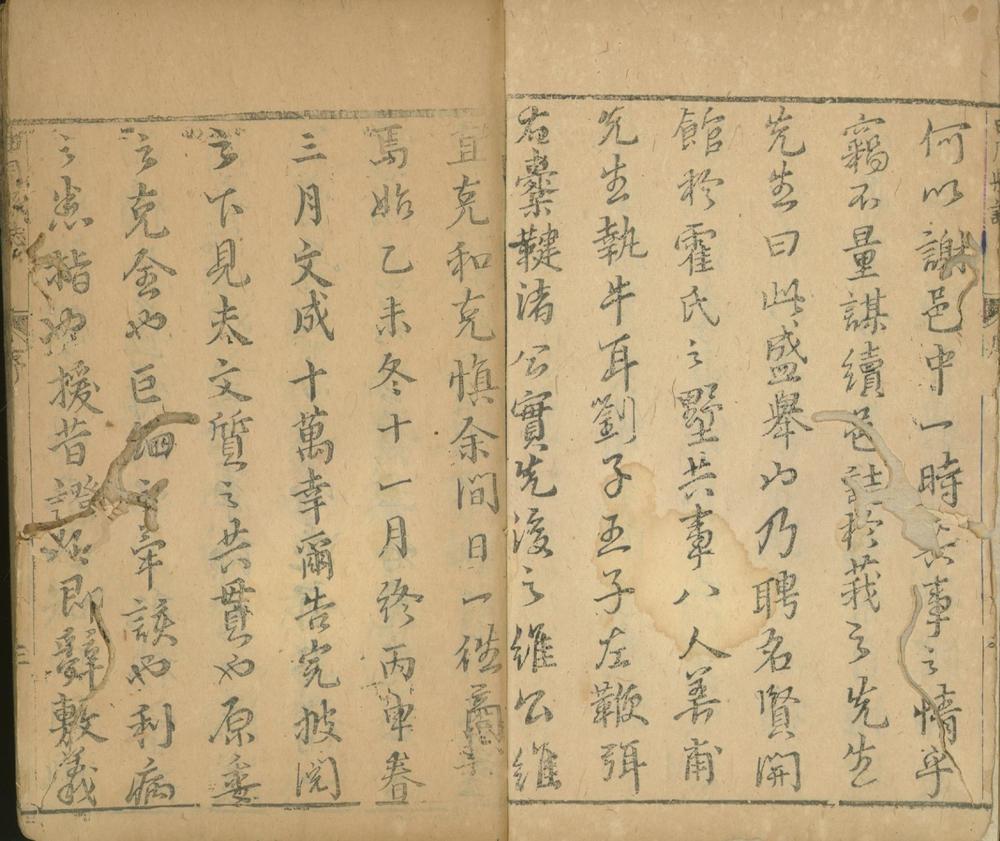 何以謝邑中一時共事之情乎
竊不量謀續邑誌於莪之先生
先生曰此盛舉也乃聘名賢開
館於霍氏之墅共事八人善甫
先生執牛耳劉子王子左鞭弭
右櫜鞬渚公實先後之維公維
宜克和克慎余間日一徃商
焉始乙未冬十一月終丙申春
三月文成十萬幸爾告完披閱
之下見夫文質之共貫也原委
之克全也巨細之牢該也利病
之悉指也援昔證即辭敷義